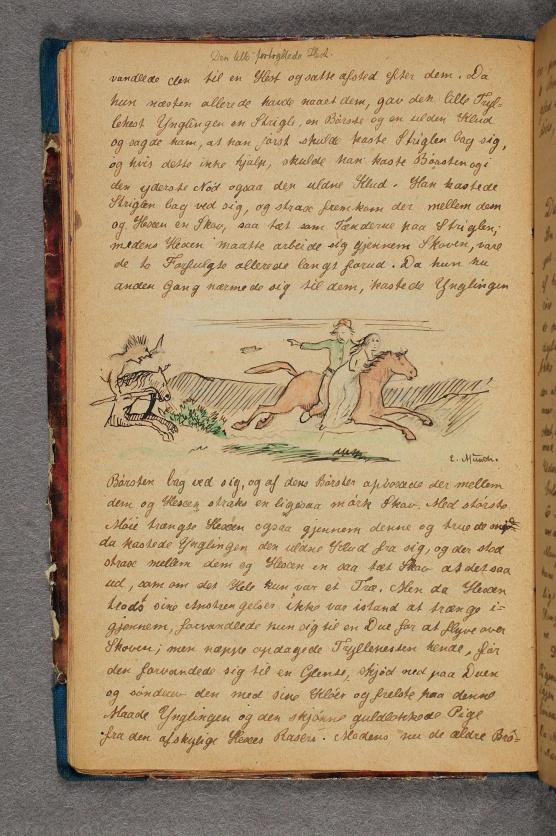 Den lille fortryllede Hest.
vandlede den til en Hest og satte afsted efter dem. Da
hun næsten allerede havde naaet dem, gav den lille Tryl-
lehest Ynglingen en Strigle, en Børste og en ulden Klud
og sagde ham, at han først skulde kaste Striglen bag sig,
og hvis dette ikke hjalp, skulde han kaste Børsten og i
den yderste Nød ogsaa den uldne Klud. Han kastede
Striglen bag ved sig, og strax fremkom der mellem dem
og Hexen en Skov, saa tæt som Tænderne paa Striglen;
medens Hexen maatte arbeide sig gjennem Skoven, vare
de to Forfulgte allerede langt forud. Da hun nu
anden Gang nærmede sig til dem, kastede Ynglingen
E. Munch.
Børsten bag ved sig, og af dens Børster opvoxede der mellem
dem og Hexen straks en ligesaa mørk Skov. Med største
Møie trængte Hexen ogsaa gjennem denne og truede
da kastede Ynglingen den uldne Klud fra sig, og der stod
strax mellem dem og Hexen en saa tæt Skov at det saa
ud, som om det Hele kun var et Træ. Men da Hexen
trods sine Anstrengelser ikke var istand at trænge i-
gjennem, forvandlede hun sig til en Due for at flyve over
Skoven; men neppe opdagede Tryllehesten hende, før
den forvandlede sig til en skjød ned paa Duen
og den med sine Kløer og frelste paa denne
Maade Ynglingen og den skjønne guldlokkede Pige
fra den afskylige Hexes Raseri. Medens nu de ældre Brø-